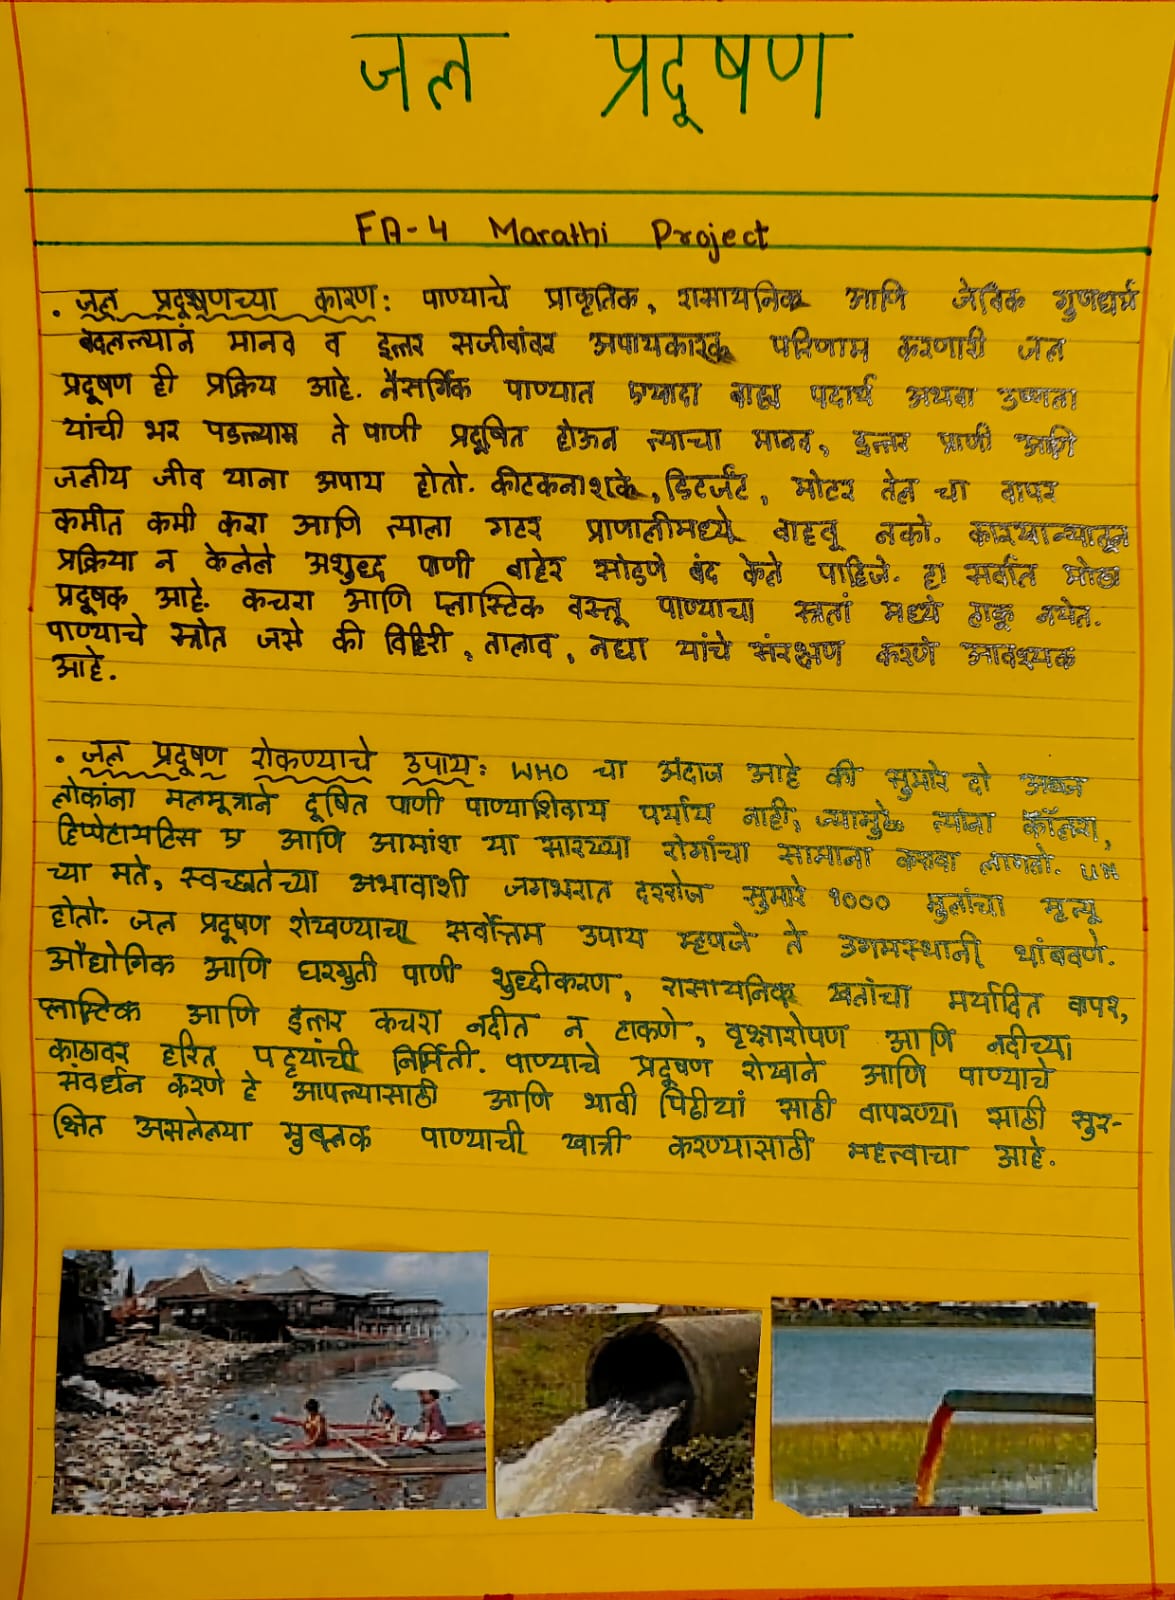 जल प्रदूषण
FA-4 Marathi Project
. जल प्रदूषणच्या कारण: पाण्याचे प्राकृतिक, रासायनिक आणि जेविक गुणधर्म
बदलल्यानं मानव व इत्तर सजीवांवर अपायकारक परिणाम करणारी जल
प्रदूषण ही प्रक्रिय आहे. नैसर्गिक पाण्यात एखादा बाह्य पदार्थ अथवा उष्णता
यांची भर पडल्यास ते पाणी प्रदूषित होऊन त्याचा मानव, इत्तर प्राणी आणि
जलीय जीव याना अपाय होतो. कीटकनाशके, डिटर्जंट, मोटर तेल चा वापर
कमीत कमी करा आणि त्याला गटर प्राणालीमध्ये वाहवू नको. कारखान्यातून
प्रक्रिया न केलेले अशुद्ध पाणी बाहेर सोडणे बंद केले पाहिजे. हा सर्वात मोठा
प्रदूषक आहे. कचरा आणि प्लास्टिक वस्तू पाण्याचा स्त्रतां मध्ये टाकू नयेत.
पाण्याचे स्त्रोत जसे की विहिरी, तालाव, नद्या यांचे संरक्षण करणे आवश्यक
आहे.
. जल प्रदूषण रोकण्याचे उपाय: WHO चा अंदाज आहे की सुमारे दो अब्ज
लोकांना मलमूत्राने दूषित पाणी पाण्याशिवाय पर्याय नाही, ज्यामुळे त्यांना कॉलरा,
हिप्पेटायटिस ए आणि आमांश या सारख्या रोगांचा सामाना करावा लागतो. UN
च्या मते, स्वच्छतेच्या अभावाशी जगभरात दररोज सुमारे १००० मुलांचा मृत्यू
होतो. जल प्रदूषण रोखण्याचा सर्वोत्तम उपाय म्हणजे ते उगमस्थानी थांबवणे.
औद्योगिक आणि घरगुती पाणी शुद्धीकरण, रासायनिक खतांचा मर्यादित वापर,
प्लास्टिक आणि इत्तर कचरा नदीत न टाकणे, वृक्षारोपण आणि नदीच्या
काठावर हरित पट्ट्यांची निर्मिती. पाण्याचे प्रदूषण रोखाने आणि पाण्याचे
संवर्धन करणे हे आपल्यासाठी आणि भावी पिढीयां साठी वापरण्या साठी सुर-
क्षित असलेलया मुबलक पाण्याची खात्री करण्यासाठी महत्त्वाचा आहे.